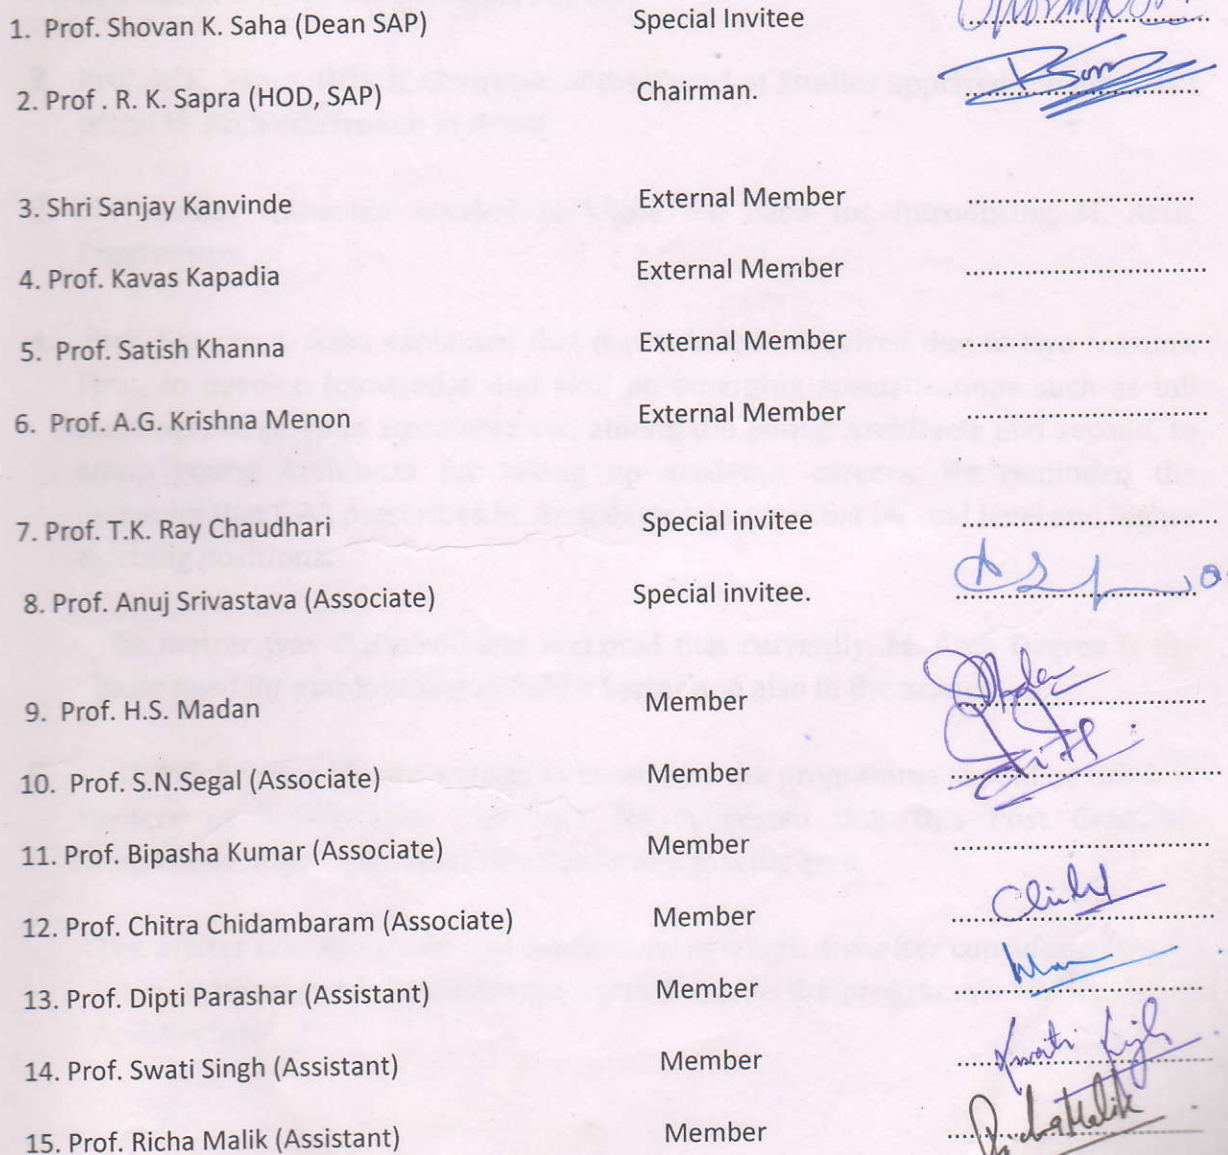 1. Prof. Shovan K. Saha (Dean SAP) Special Invitee
2. Prof . R. K. Sapra (HOD, SAP) Chairman.
3. Shri Sanjay Kanvinde External Member
4. Prof. Kavas Kapadia External Member
5. Prof. Satish Khanna External Member
6. Prof. A.G. Krishna Menon External Member
7. Prof. T.K. Ray Chaudhari Special invitee
8. Prof. Anuj Srivastava (Associate) Special invitee.
9. Prof. H.S. Madan Member
10. Prof. S.N.Segal (Associate) Member
11. Prof. Bipasha Kumar (Associate) Member
12. Prof. Chitra Chidambaram (Associate) Member
13. Prof. Dipti Parashar (Assistant) Member
14. Prof. Swati Singh (Assistant) Member Swati Singh
15. Prof. Richa Malik (Assistant) Member Richa Malik